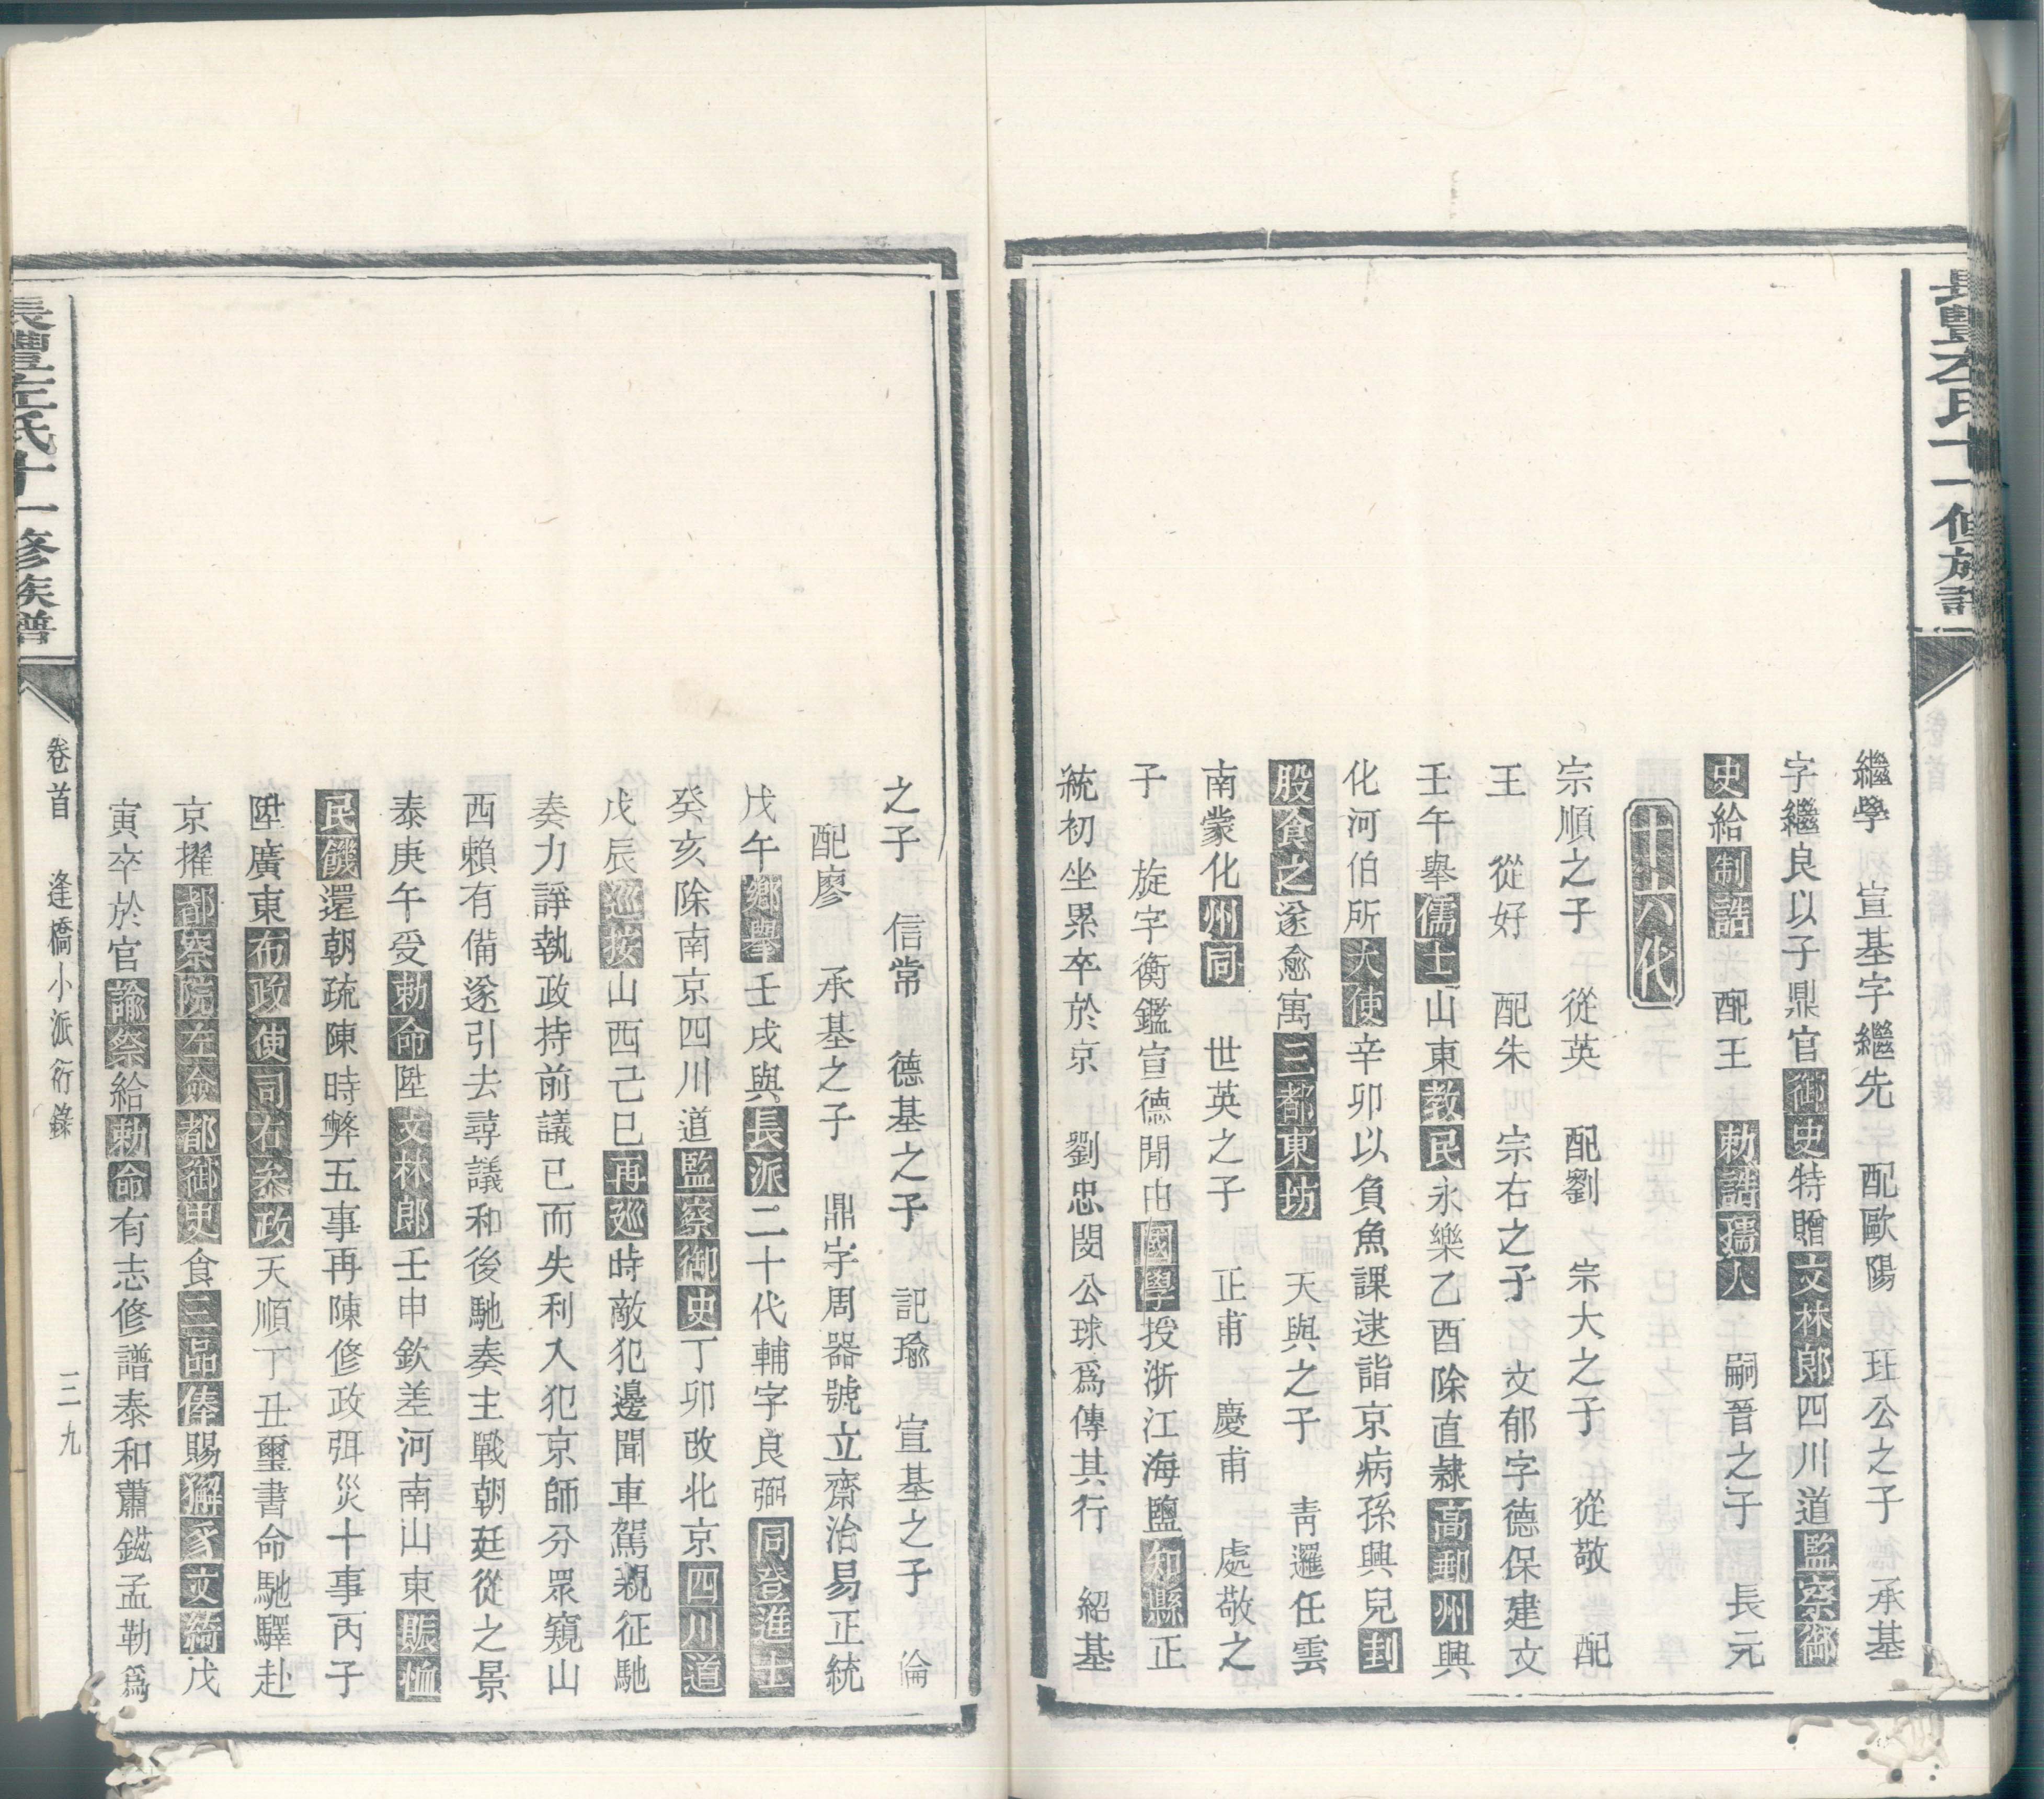 長豐左氏十一修族譜
繼學　宣基字繼先　配歐陽　珏公之子　承基
字繼良以子鼎官御史特贈文林郎四川道監察御
史給制誥　配王　勅誥孺人　嗣晉之子　長元
十八代
宗順之子　從英　配劉　宗大之子　從敬　配
王　從好　配朱　宗右之子　文郁字德保建文
壬午舉儒士山東教民永樂乙酉除直隸高郵州興
化河伯所大使辛卯以負魚課逮詣京病孫興兒刲
股食之遂愈寓三都東坊　天與之子　靑邏任雲
南蒙化州同　世英之子　正甫　慶甫　處敬之
子　旋字衡鑑宣德閒由國學授浙江海鹽知縣正
統初坐累卒於京　劉忠閔公球爲傳其行　紹基
之子　信常　德基之子　記瑜　宣基之子　倫
配廖　承基之子　鼎字周器號立齋治易正統
戊午鄉舉壬戌與長派二十代輔字良弼同登進士
癸亥除南京四川道監察御史丁卯改北京四川道
戊辰巡按山西己巳再廵時敵犯邊聞車駕親征馳
奏力諍執政持前議已而失利入犯京師分眾窺山
西賴有備遂引去尋議和後馳奏主戰朝廷從之景
泰庚午受勅命陞文林郎壬申欽差河南山東賑恤
民饑還朝疏陳時弊五事再陳修政弭災十事丙子
陞廣東布政使司右叅政天順丁丑璽書命馳驛赴
京擢都察院左僉都御史食三品俸賜獬豸文綺戊
寅卒於官諭祭給勅命有志修譜泰和蕭鎡孟勒爲
長豐左氏十一修族譜
卷首　逢橋小派衍錄　三九